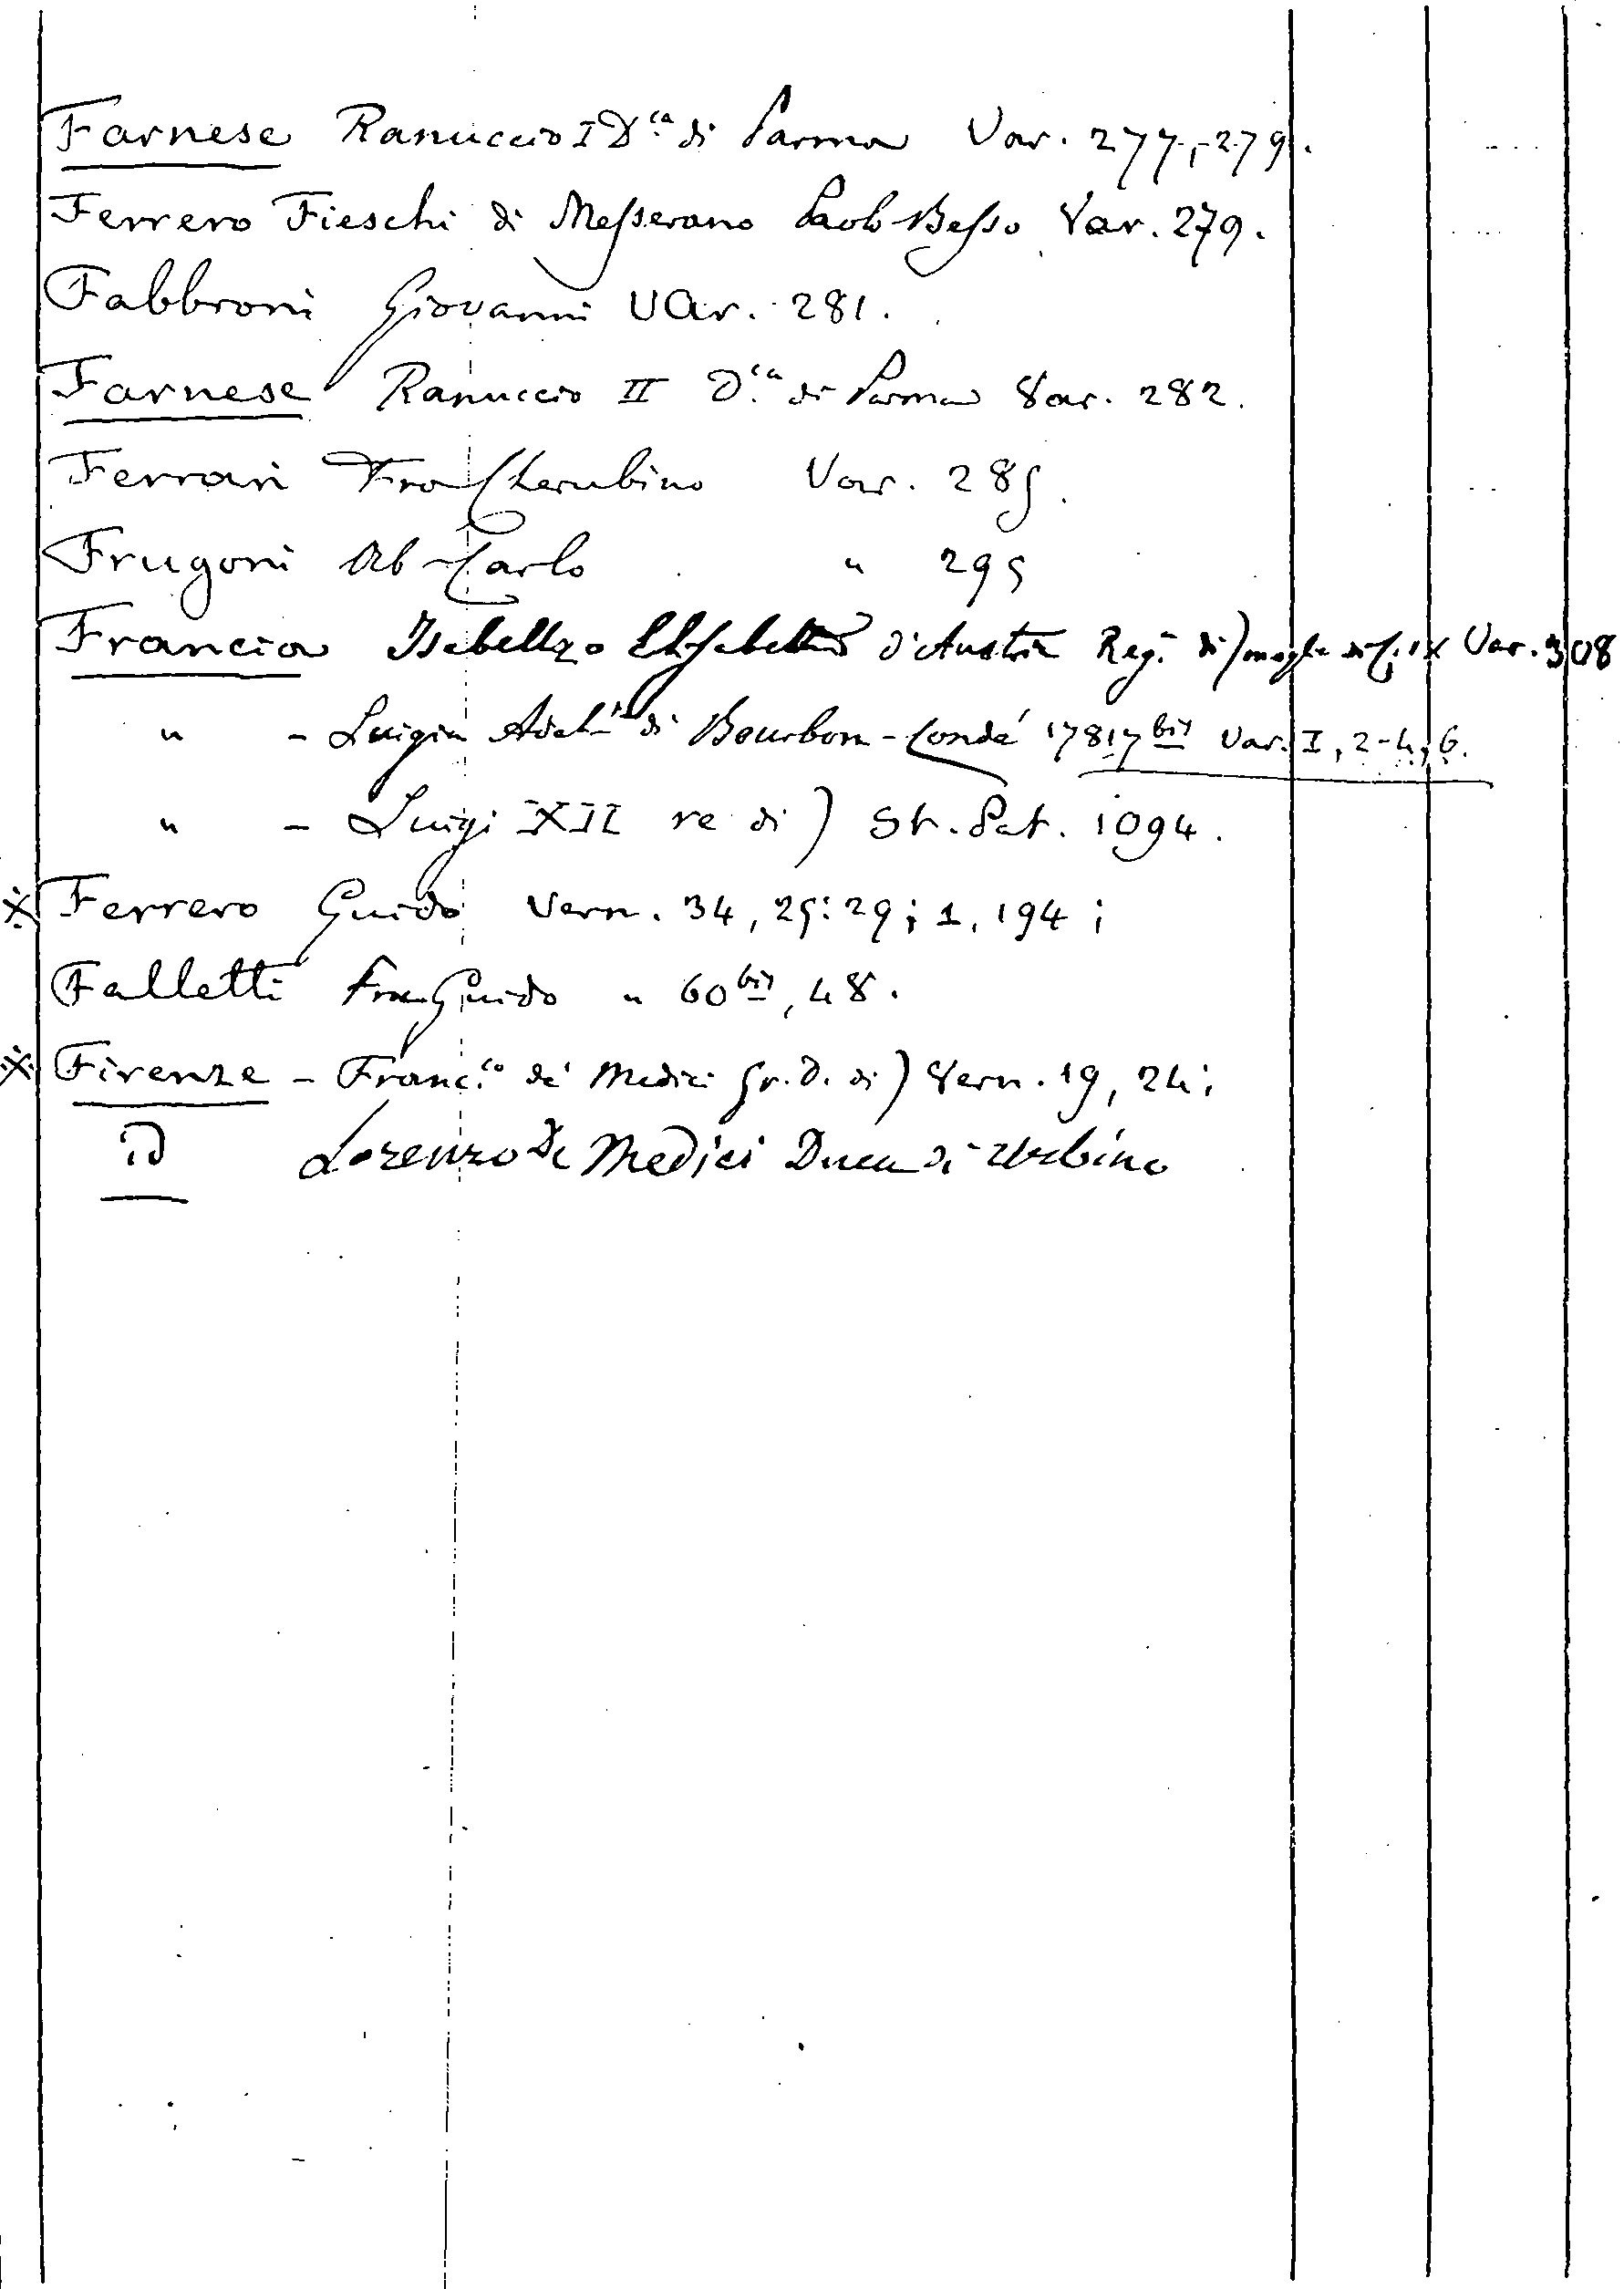 Farnese Ranuccio I D.ca di Parma Var. 277,-279.
Ferrero Fieschi di Messerano Paolo Besso Var. 279.
Fabbroni Giovanni Var. 281.
Farnese Ranuccio II D.ca di Parma Var. 282.
Ferrari Fra Cherubino Var. 285.
Frugoni Ab. Carlo " 295
Francia Isabella o Elisabetta d'Austria Reg. di) moglie di C. IX Var. 308
" - Luigia Adel. di Bourbon-Condé 17817 bis Var. I, 2-4, 6.
" - Luigi XII re di) St. Pat. 1094.
※ Ferrero Guido Vern. 34, 25:29; 1, 194;
Falletti Fra Guido " 60 bis, 48.
※ Firenze - Franc.co de' Medici Gr. D. di) Vern. 19, 24;
ID Lorenzo De Medici Duca di Urbino